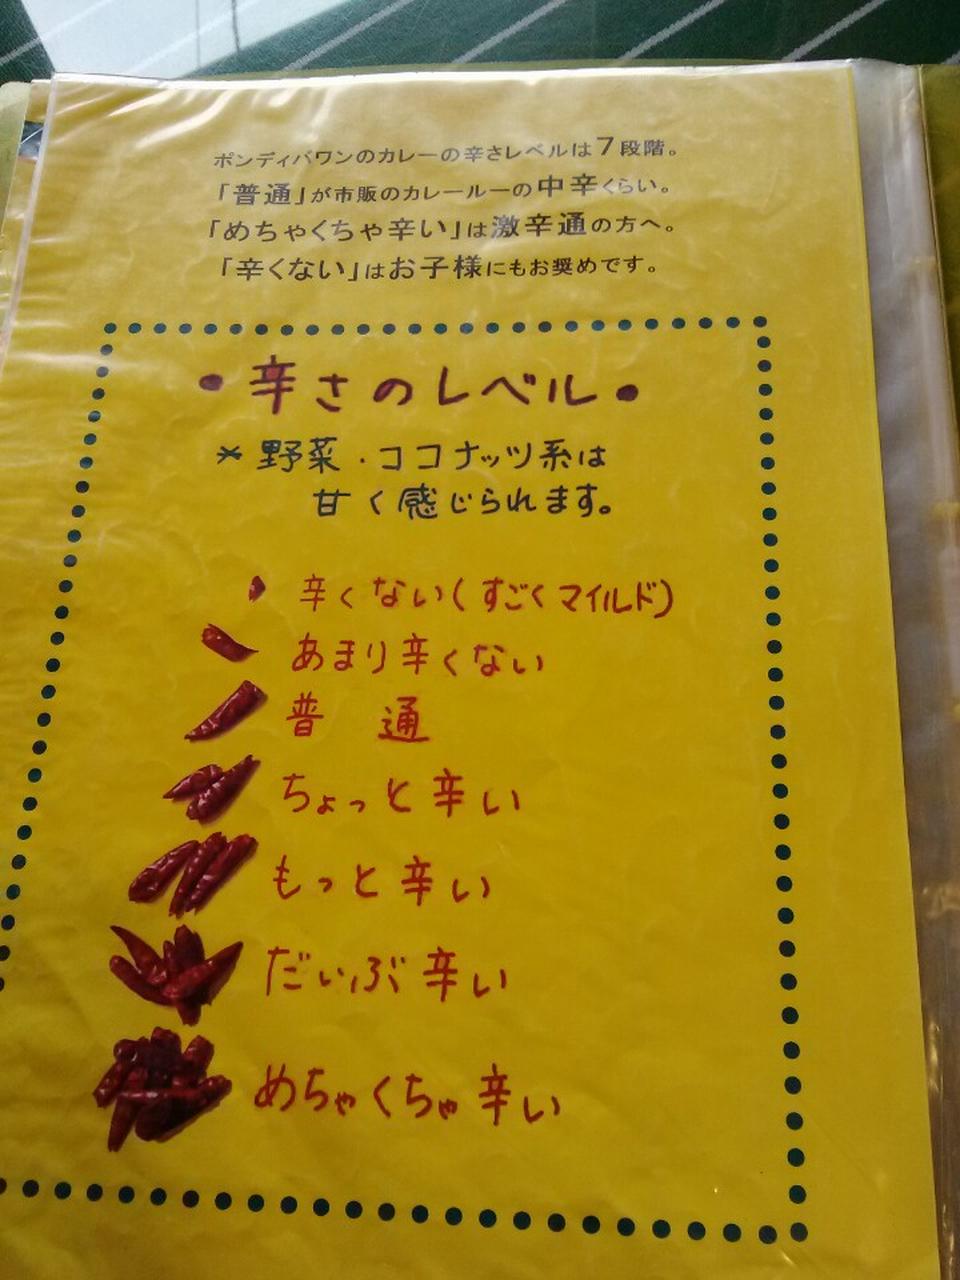 ポンディバワンのカレーの辛さレベルは7段階。
「普通」が市販のカレールーの中辛くらい。
「めちゃくちゃ辛い」は激辛通の方へ。
「辛くない」はお子様にもお奨めです。
・辛さのレベル・
※野菜・ココナッツ系は
甘く感じられます。
辛くない(すごくマイルド)
あまり辛くない
普 通
ちょっと辛い
もっと辛い
だいぶ辛い
めちゃくちゃ辛い